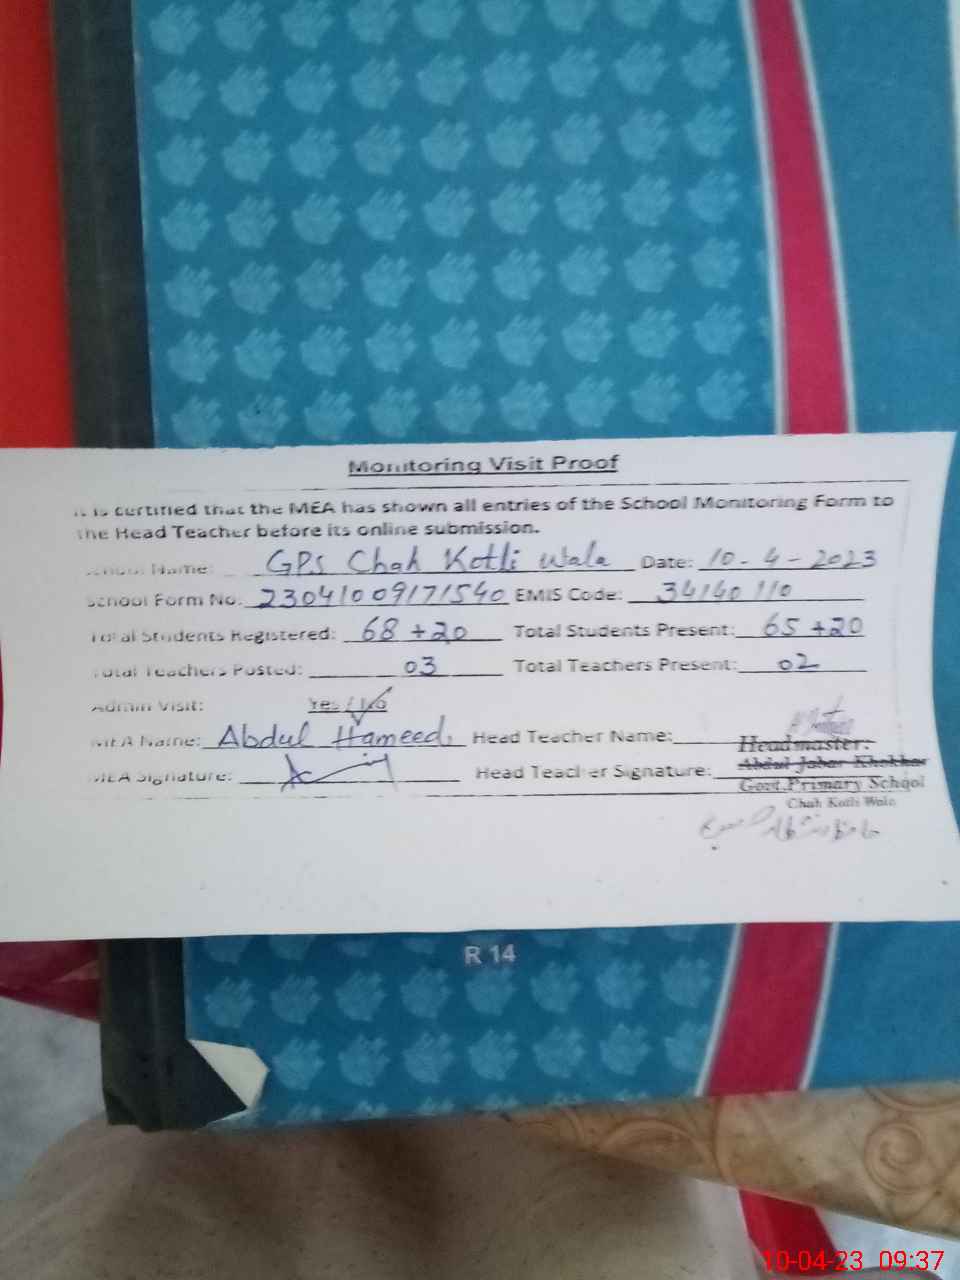 Monitoring Visit Proof
It is certified that the MEA has shown all entries of the School Monitoring Form to
the Head Teacher before its online submission.
School Name: GPS Chah Kotli Wala Date: 10-4-2023
School Form No. 23041009171540 EMIS Code: 34140110
Total Students Registered: 68+20 Total Students Present: 65+20
Total Teachers Posted: 03 Total Teachers Present: 02
Admin Visit: Yes / No
MEA Name: Abdul Hameed Head Teacher Name:
Headmaster:
MEA Signature: Head Teacher Signature: Abdul Jabar Khokhar
Govt.Primary School
Chah Kotli Wala
R 14
10-04-23 09:37